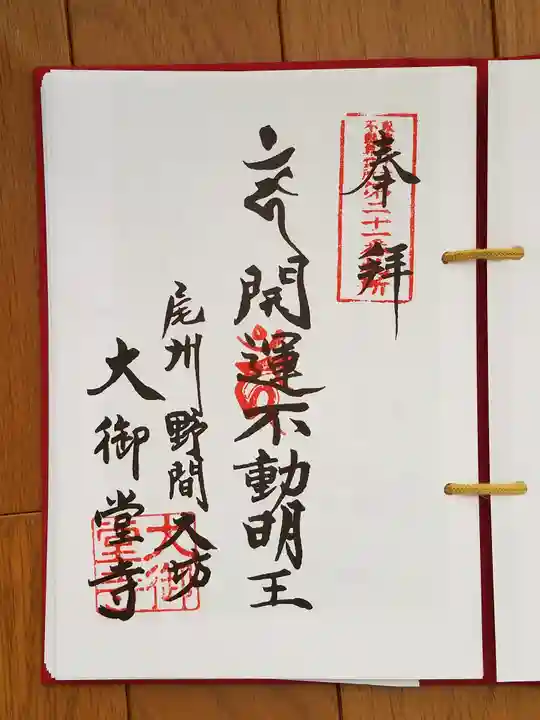 奉拝
第二十一番
開運不動明王
尾州野間大坊
大御堂寺
大御堂